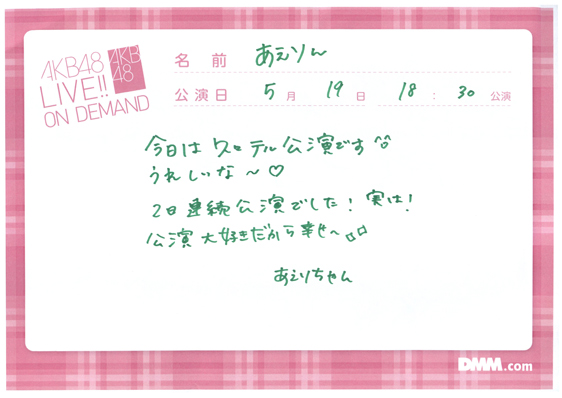 AKB48
LIVE!!
ON DEMAND
AKB
48
名前 あえりん
公演日 5月 19日 18:30 公演
今日は クルテル公演です^^
うれしいな～♡
2日連続公演でした！実は！
公演大好きだから幸せ〜
あえりちゃん
DMM.com